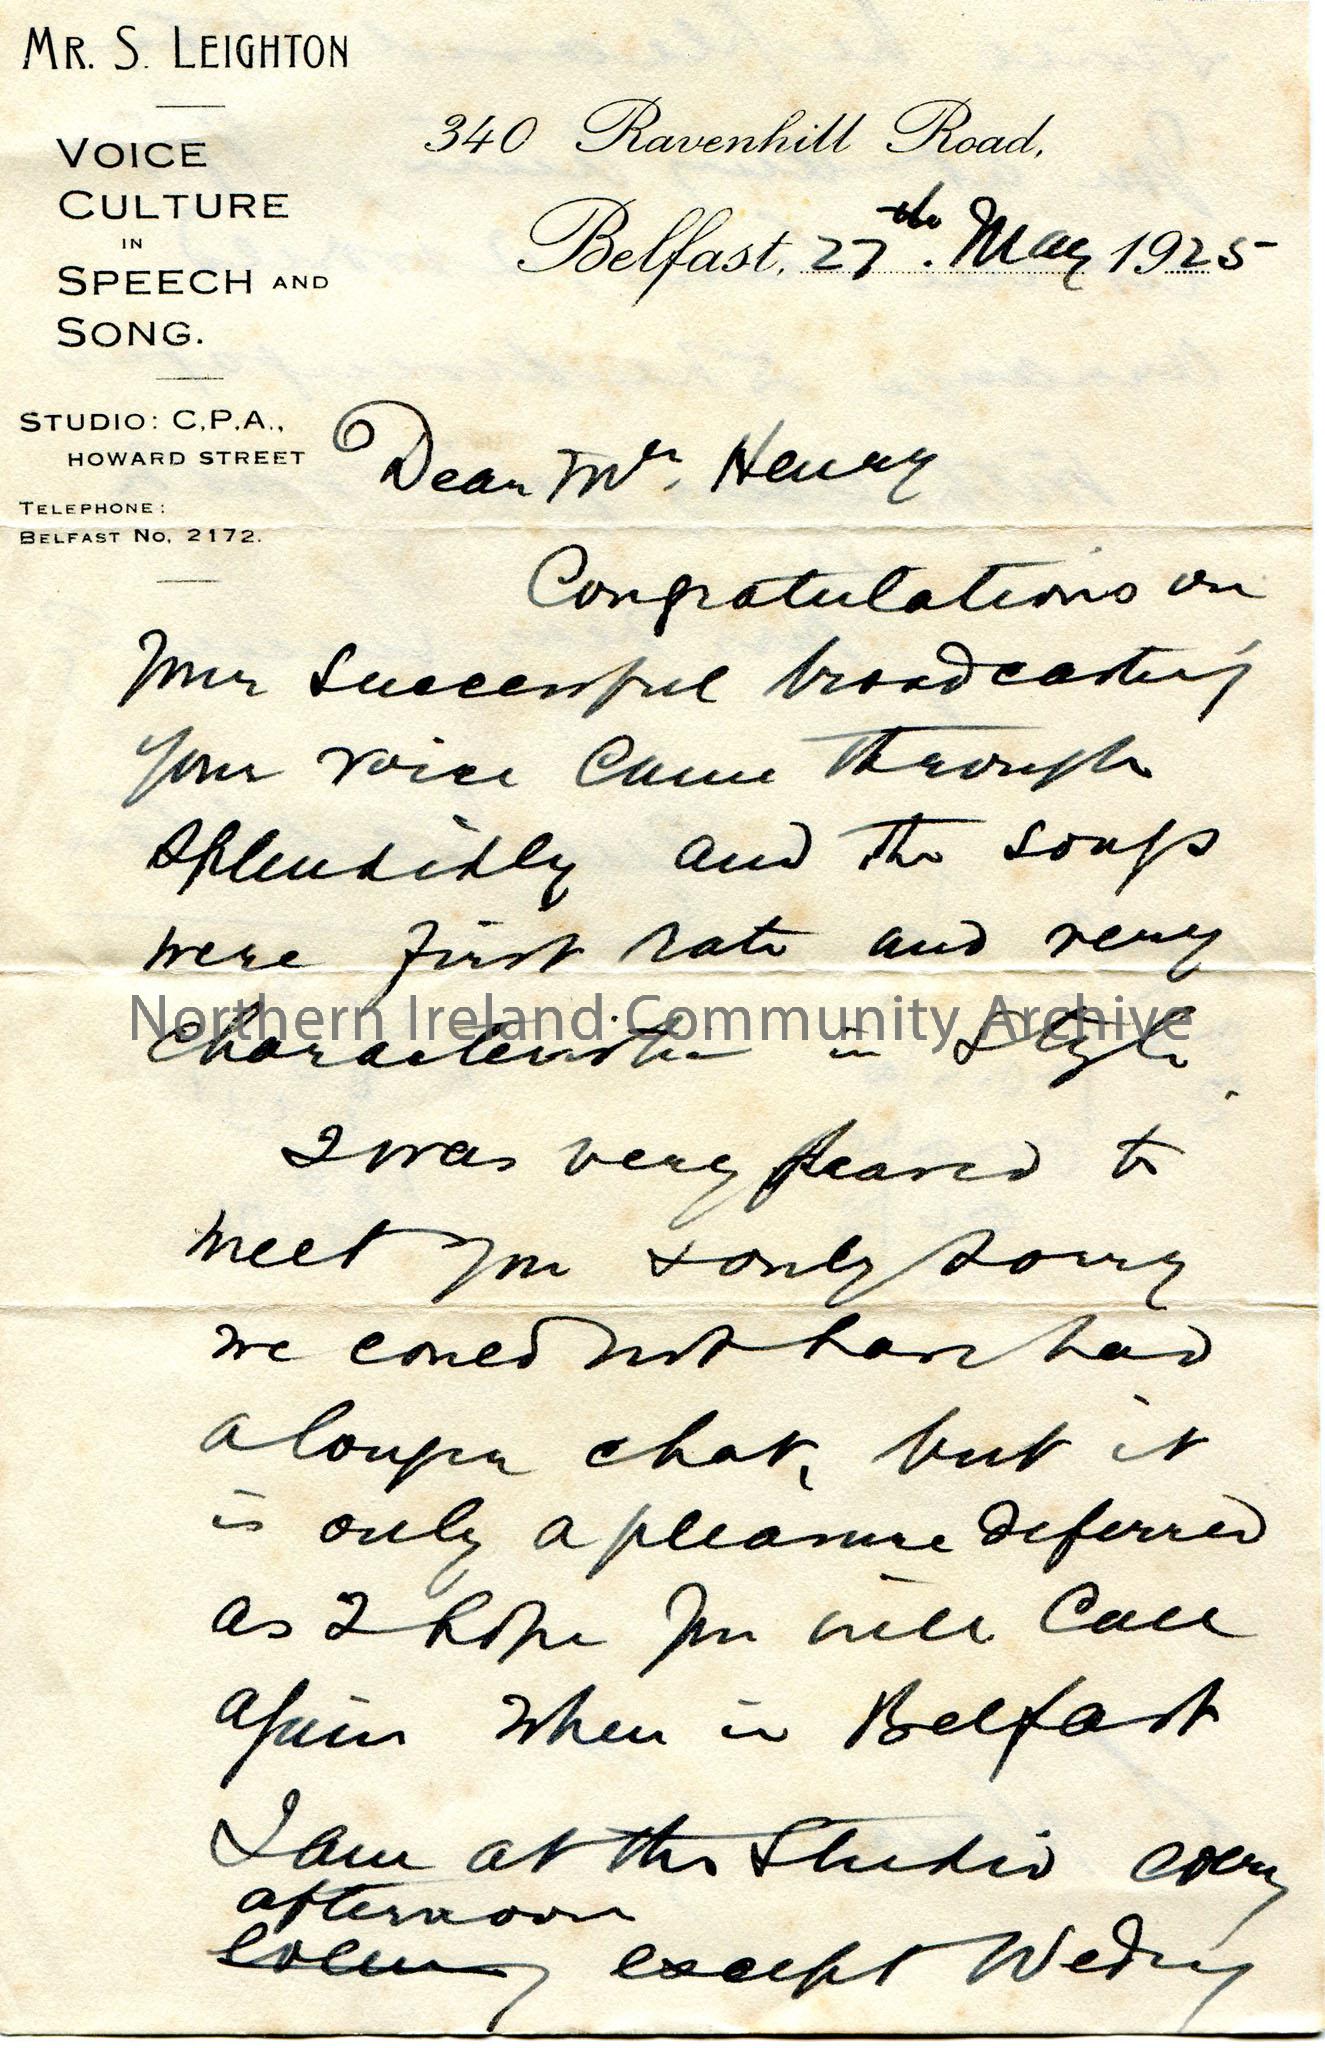 MR. S. LEIGHTON
VOICE
CULTURE
IN
SPEECH AND
SONG.
STUDIO: C.P.A.,
HOWARD STREET
TELEPHONE:
BELFAST NO. 2172.
340 Ravenhill Road,
Belfast, 27th. May 1925
Dear Mr. Henry
Congratulations on
your successful broadcasting
your voice came through
splendidly and the songs
were first rate and very
Northern Ireland Community Archive
characteristic in style.
I was very pleased to
meet you & only sorry
we could not have had
a longer chat, but it
is only a pleasure deferred
as I hope you will call
again when in Belfast
I am at the Studio every
afternoon
evening except Wedny